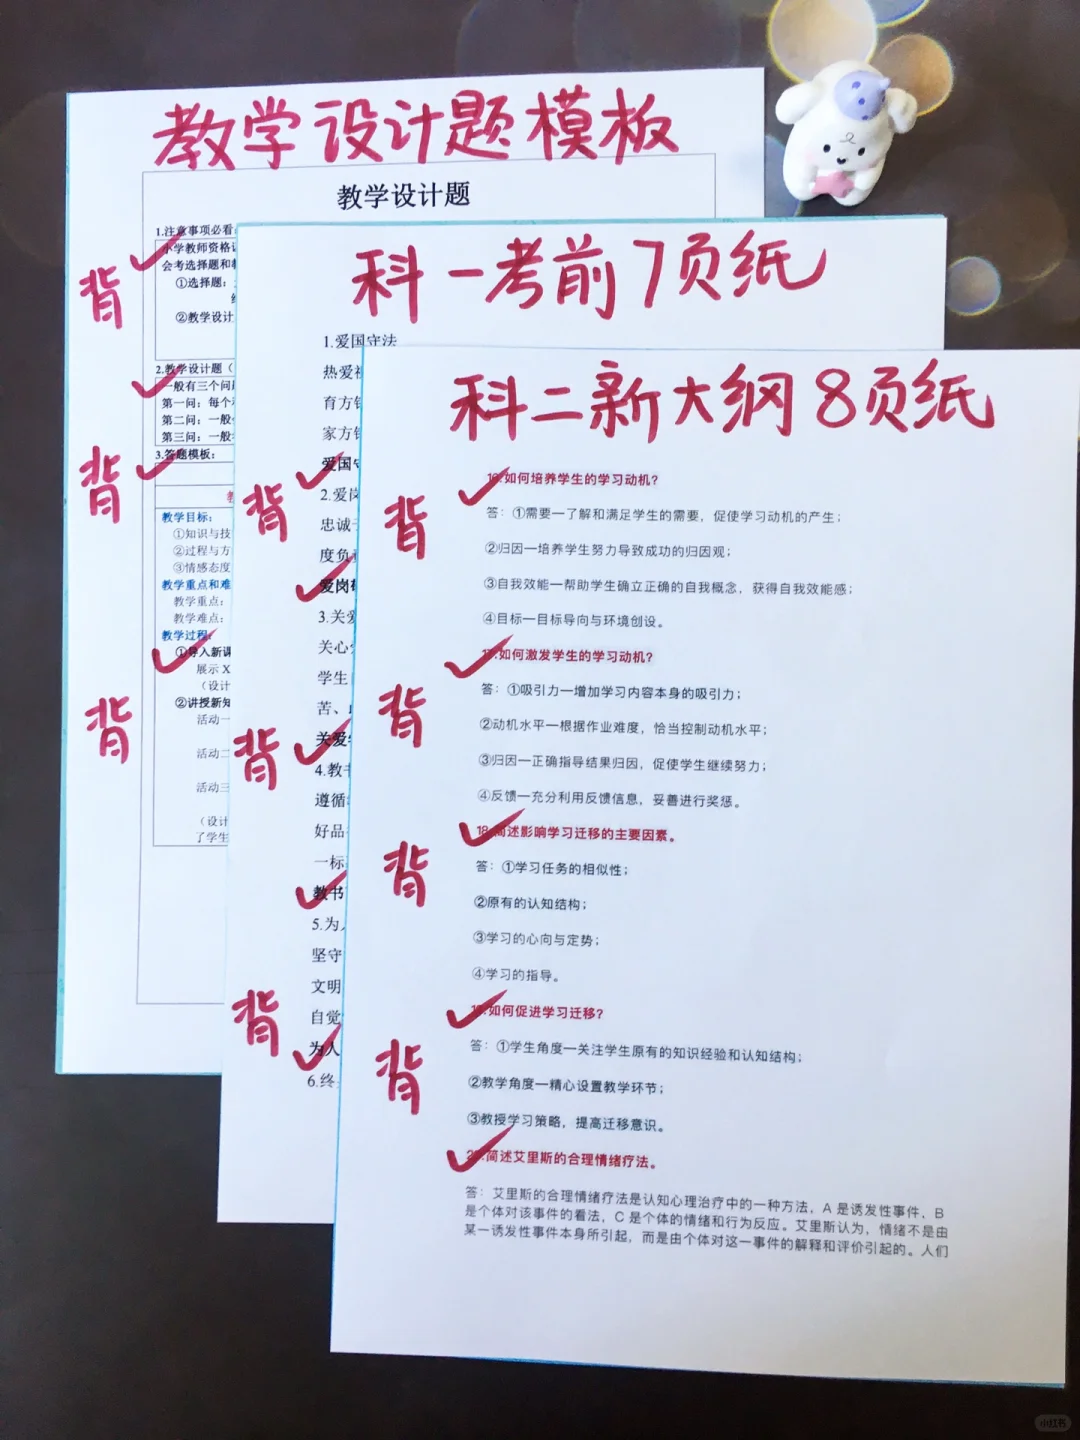 教学设计题模板
教学设计题
1.注意事项必看
小学教师资格
会考选择题和
①选择题：
②教学设计
2.教学设计题（
一般有三个问
第一问：每个
第二问：一般
第三问：一般
3.答题模板：
教学目标：
①知识与技
②过程与方
③情感态度
教学重点和难
教学重点：
教学难点：
教学过程：
①导入新课
展示 X
（设计
②讲授新知
活动一
活动二
活动三
（设计
了学生
背
背
背
科一考前7页纸
1.爱国守法
热爱
育方
家方
爱国
2.爱岗
忠诚
度负
爱岗
3.关爱
关心
学生
苦、
关爱
4.教书
遵循
好品
一标
教书
5.为人
坚守
文明
自觉
为人
6.终
背
背
背
科二新大纲8页纸
16.如何培养学生的学习动机？
答：①需要—了解和满足学生的需要，促使学习动机的产生；
②归因—培养学生努力导致成功的归因观；
③自我效能—帮助学生确立正确的自我概念，获得自我效能感；
④目标—目标导向与环境创设。
17.如何激发学生的学习动机？
答：①吸引力—增加学习内容本身的吸引力；
②动机水平—根据作业难度，恰当控制动机水平；
③归因—正确指导结果归因，促使学生继续努力；
④反馈—充分利用反馈信息，妥善进行奖惩。
18.简述影响学习迁移的主要因素。
答：①学习任务的相似性；
②原有的认知结构；
③学习的心向与定势；
④学习的指导。
19.如何促进学习迁移？
答：①学生角度—关注学生原有的知识经验和认知结构；
②教学角度—精心设置教学环节；
③教授学习策略，提高迁移意识。
20.简述艾里斯的合理情绪疗法。
答：艾里斯的合理情绪疗法是认知心理治疗中的一种方法，A 是诱发性事件、B
是个体对该事件的看法，C 是个体的情绪和行为反应。艾里斯认为，情绪不是由
某一诱发性事件本身所引起，而是由个体对这一事件的解释和评价引起的。人们
背
背
背
背
小红书